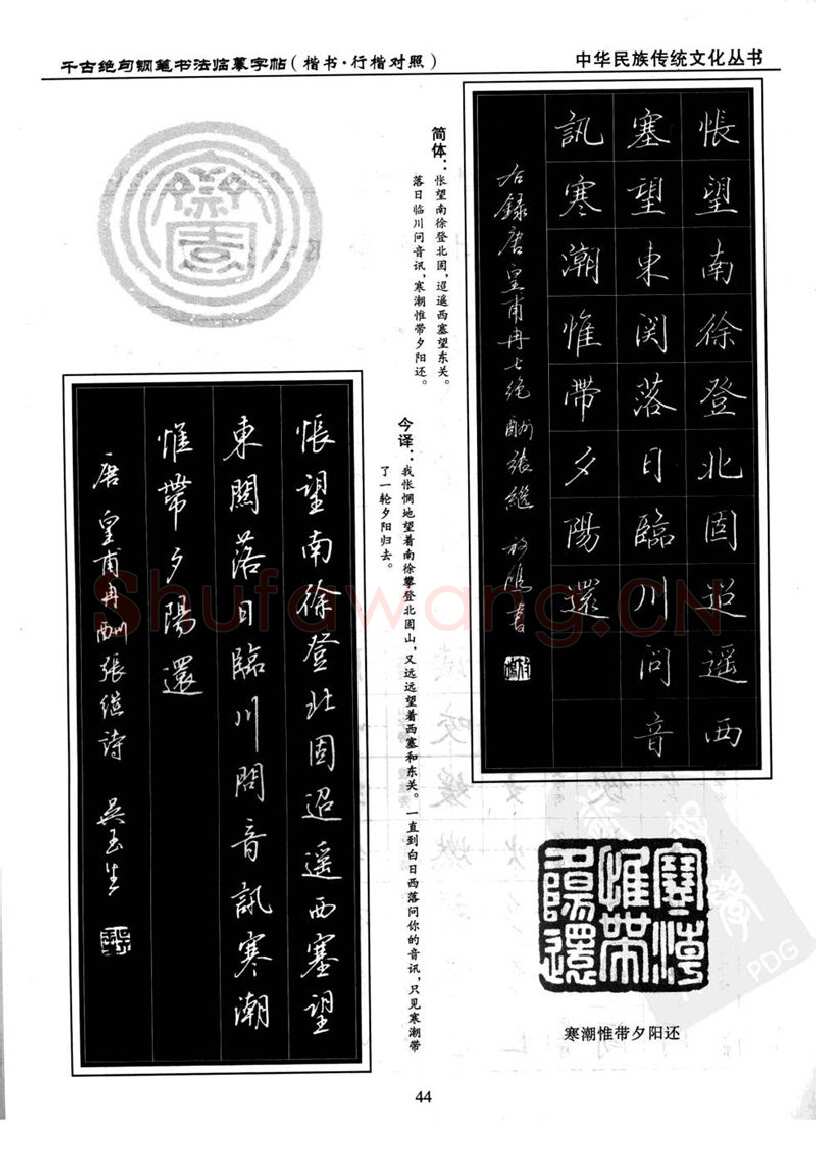 千古绝句钢笔书法临摹字帖(楷书·行楷对照)
中华民族传统文化丛书
悵望南徐登北固迢遥西
塞望東関落日臨川问音
訊寒潮惟帶夕陽還
右録唐皇甫冉七绝酬張繼
简体:怅望南徐登北固,迢遥西塞望东关。
落日临川问音讯,寒潮惟带夕阳还。
今译:我怅惘地望着南徐攀登北固山,又远远望着西塞和东关。一直到白日西落问你的音讯,只见寒潮带
了一轮夕阳归去。
悵望南徐登北固迢遥西塞望
東關落日臨川問音訊寒潮
惟帶夕陽還
唐皇甫冉酬張继詩 吴玉生
寒潮惟帶夕陽還
寒潮惟带夕阳还
Shufawang.CN
PDG
44